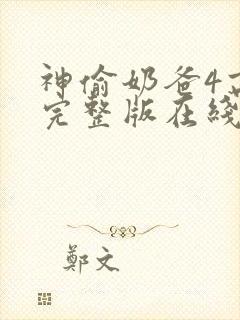 神偷奶爸4
完整版在綫
鄭文